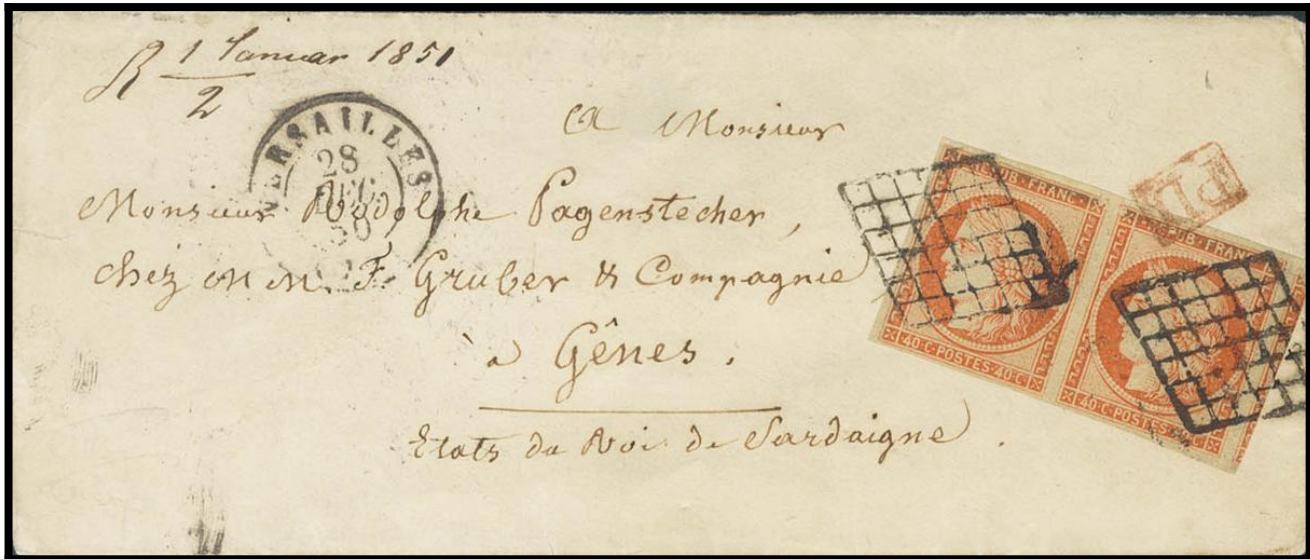 1 Januar 1851
2
VERSAILLES
28
DEC.
50
A Monsieur
Monsieur Rodolphe Pagenstecher,
chez M M. F. Gruber & Compagnie
à Gênes.
Etats du Roi de Sardaigne.
PD
REPUB. FRANC.
40 C. POSTES 40 C.
REPUB. FRANC.
40 C. POSTES